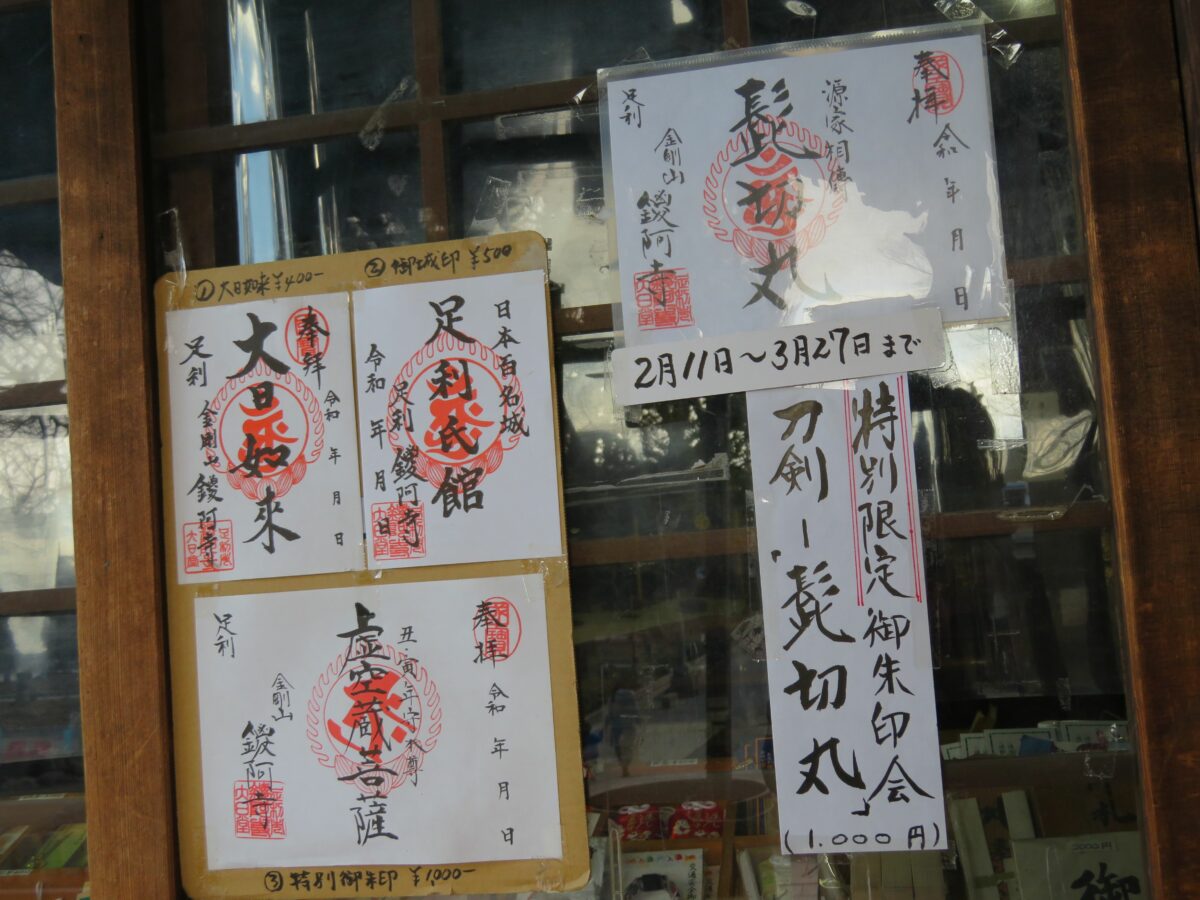 ①大日如来¥400-
②御城印 ¥500
奉拝
令和 年 月 日
大日如來
足利
金剛山 鑁阿寺
日本百名城
足利氏館
足利 鑁阿寺
令和 年 月 日
奉拝
令和 年 月 日
丑・寅年守本尊
虚空蔵菩薩
足利
金剛山
鑁阿寺
③特別御朱印 ¥1,000-
奉拝
令和 年 月 日
源家相傳
髭切丸
足利
金剛山
鑁阿寺
2月11日～3月27日まで
特別限定御朱印会
刀剣-「髭切丸」
(1.000円)
御